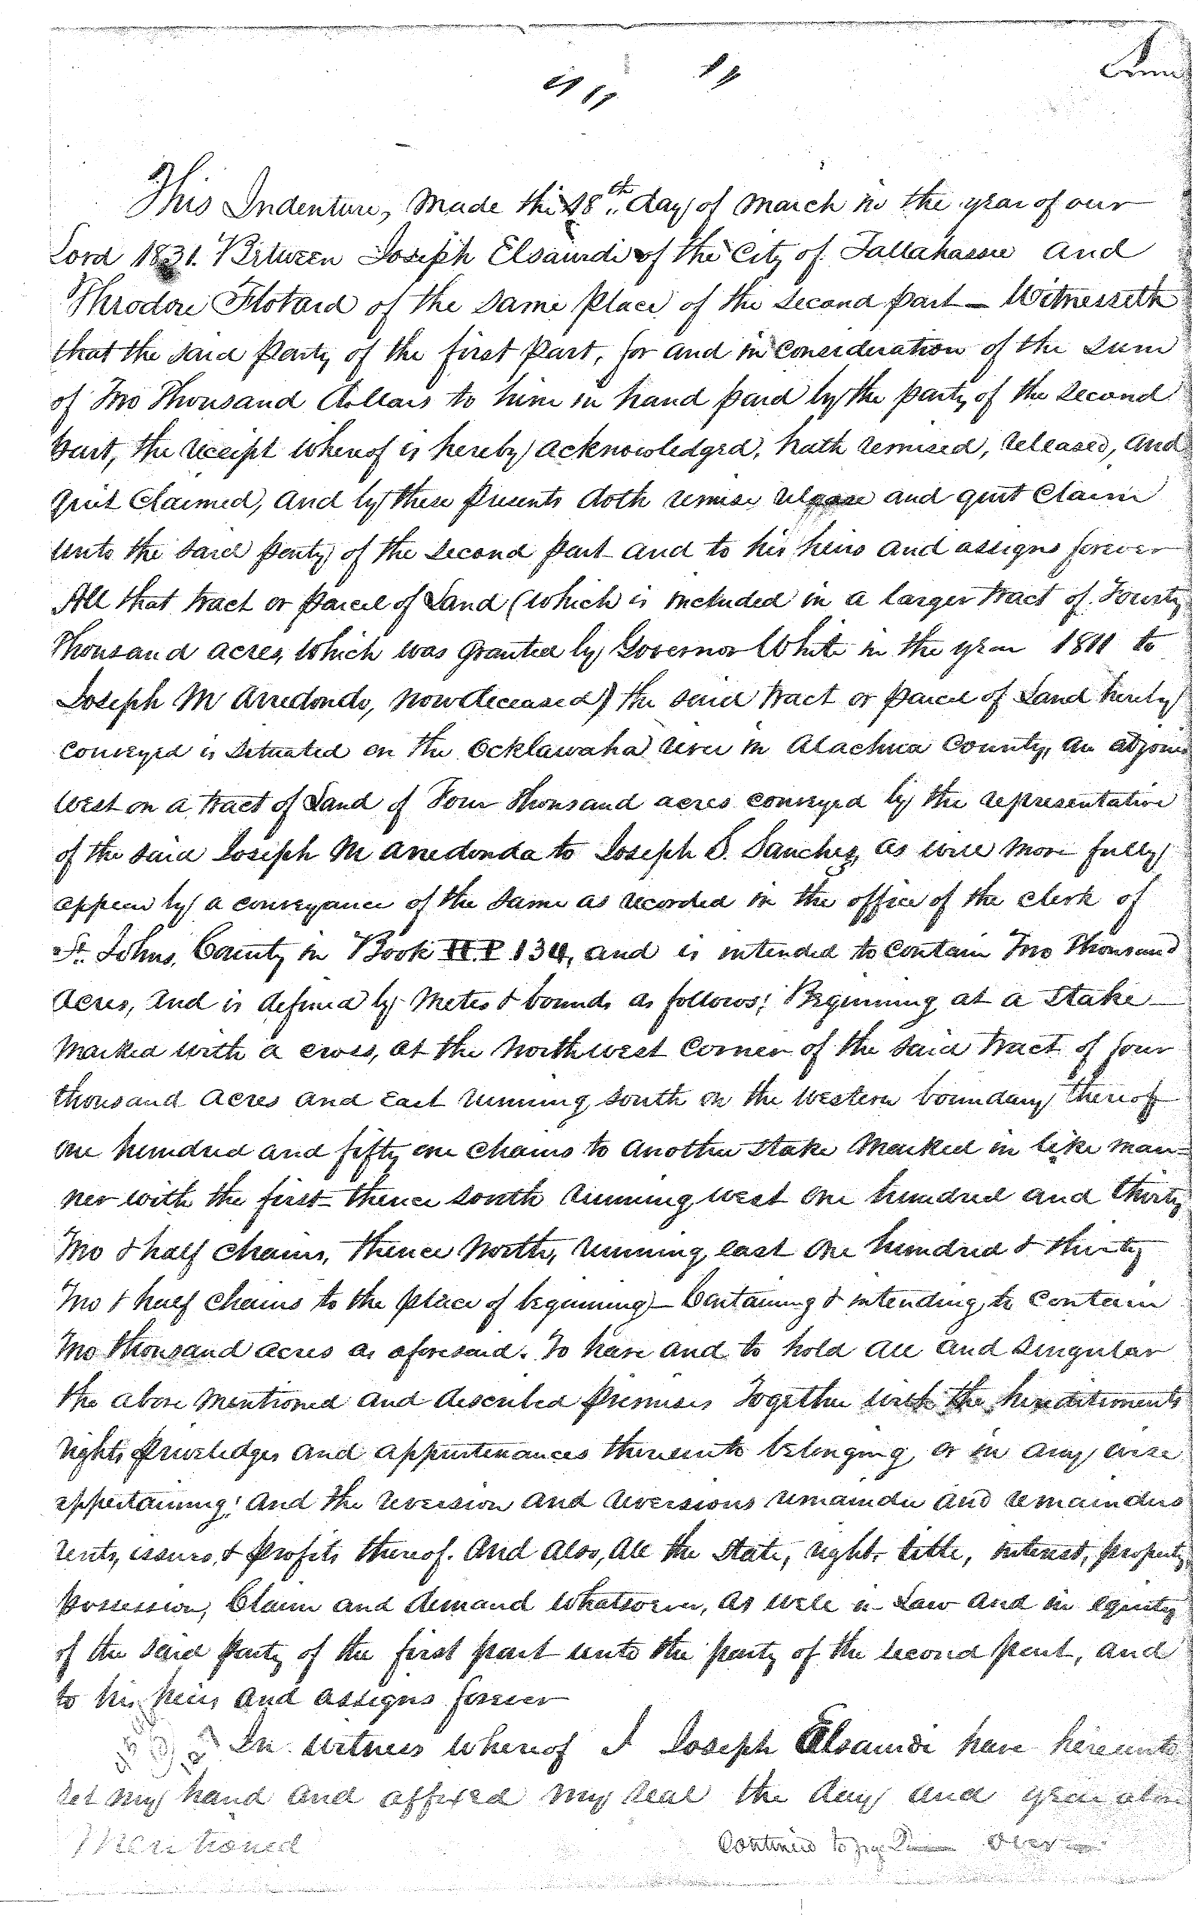 This Indenture, Made this 18th day of March in the year of our
Lord 1831. Between Joseph Elsaurdi of the City of Tallahassee and
Theodore Flotard of the same place of the second part – Witnesseth
that the said party of the first part, for and in consideration of the sum
of Two Thousand dollars to him in hand paid by the party of the second
part, the receipt whereof is hereby acknowledged, hath remised, released, and
quit claimed, and by these presents doth remise release and quit claim
unto the said party of the second part and to his heirs and assigns forever
All that tract or parcel of Land (which is included in a larger tract of Fourty
thousand acres, which was granted by Governor White in the year 1811 to
Joseph M Arredondo, now deceased) the said tract or parcel of Land hereby
conveyed is situated on the Ocklawaha river in Alachua County, an
west on a tract of Land of Four thousand acres conveyed by the representative
of the said Joseph M Arredonda to Joseph S. Sanchez, as will more fully
appear by a conveyance of the same as recorded in the office of the clerk of
St. Johns, County in Book 134, and is intended to contain Two Thousand
Acres, and is defined by metes & bounds as follows; Beginning at a stake
marked with a cross, at the northwest corner of the said tract of four
thousand acres and East running south on the western boundary thereof
one hundred and fifty one chains to another stake marked in like man=
ner with the first thence south running west one hundred and thirty
Two & half chains, thence North, running east one hundred & thirty
Two & half chains to the place of beginning – Containing & intending to contain
Two thousand acres as aforesaid. To have and to hold all and singular
the above mentioned and described premises Together with the hereditiments
rights priveledges and appurtenances thereunto belonging, or in any wise
appertaining; and the reversion and reversions remainder and remainders
rents, issues, & profits thereof. And also, all the State, right, title, interest, property,
possession, Claim and demand whatsoever, as well in Law and in equity
of the said party of the first part unto the party of the second part, and
to his heirs and assigns forever
In witness whereof I Joseph Elsaurdi have hereunto
set my hand and affixed my seal the day and year above
Mentioned
Continued to over